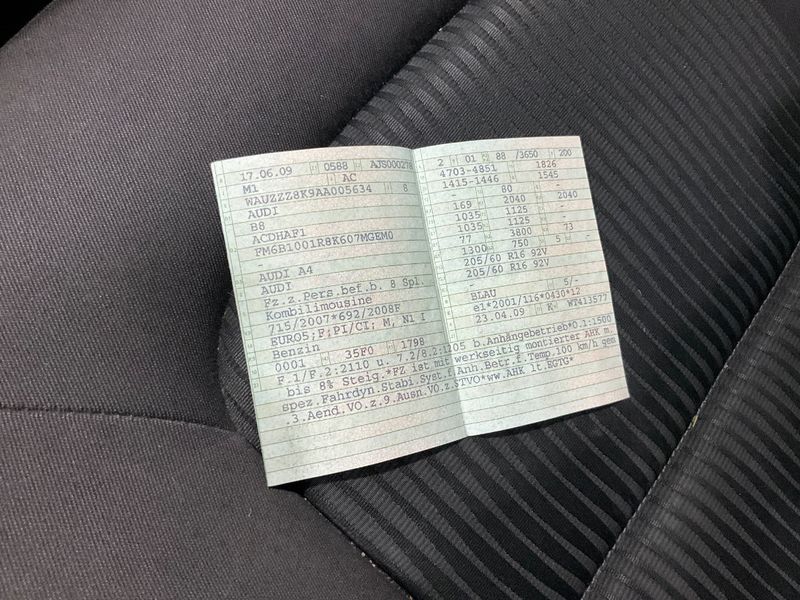 17.06.09 0588 AJS000278
M1 AC
WAUZZZ8K9AA005634 8
AUDI
B8
ACDHAF1
FM6B1001R8K607MGEM0
-
AUDI A4
AUDI
Fz.z.Pers.bef.b. 8 Spl.
Kombilimousine
715/2007*692/2008F
EURO5;F;PI/CI; M, N1 I
Benzin
0001 35F0 1798
2 01 88 /3650 200
4703-4851 1826
1415-1446 1545
- 80 -
169 2040 2040
1035 1125 -
1035 1125 -
77 3800 73
1300 750 5 -
205/60 R16 92V
205/60 R16 92V
-
BLAU 5/-
e1*2001/116*0430*12
23.04.09 K- WT413577
F.1/F.2:2110 u. 7.2/8.2:1205 b.Anhängebetrieb*O.1:1500
bis 8% Steig.*FZ ist mit werkseitig montierter AHK m.
spez.Fahrdyn.Stabi.Syst.f.Anh.Betr.f.Temp.100 km/h gem
.3.Aend.VO.z.9.Ausn.VO.z.STVO*ww.AHK lt.EGTG*